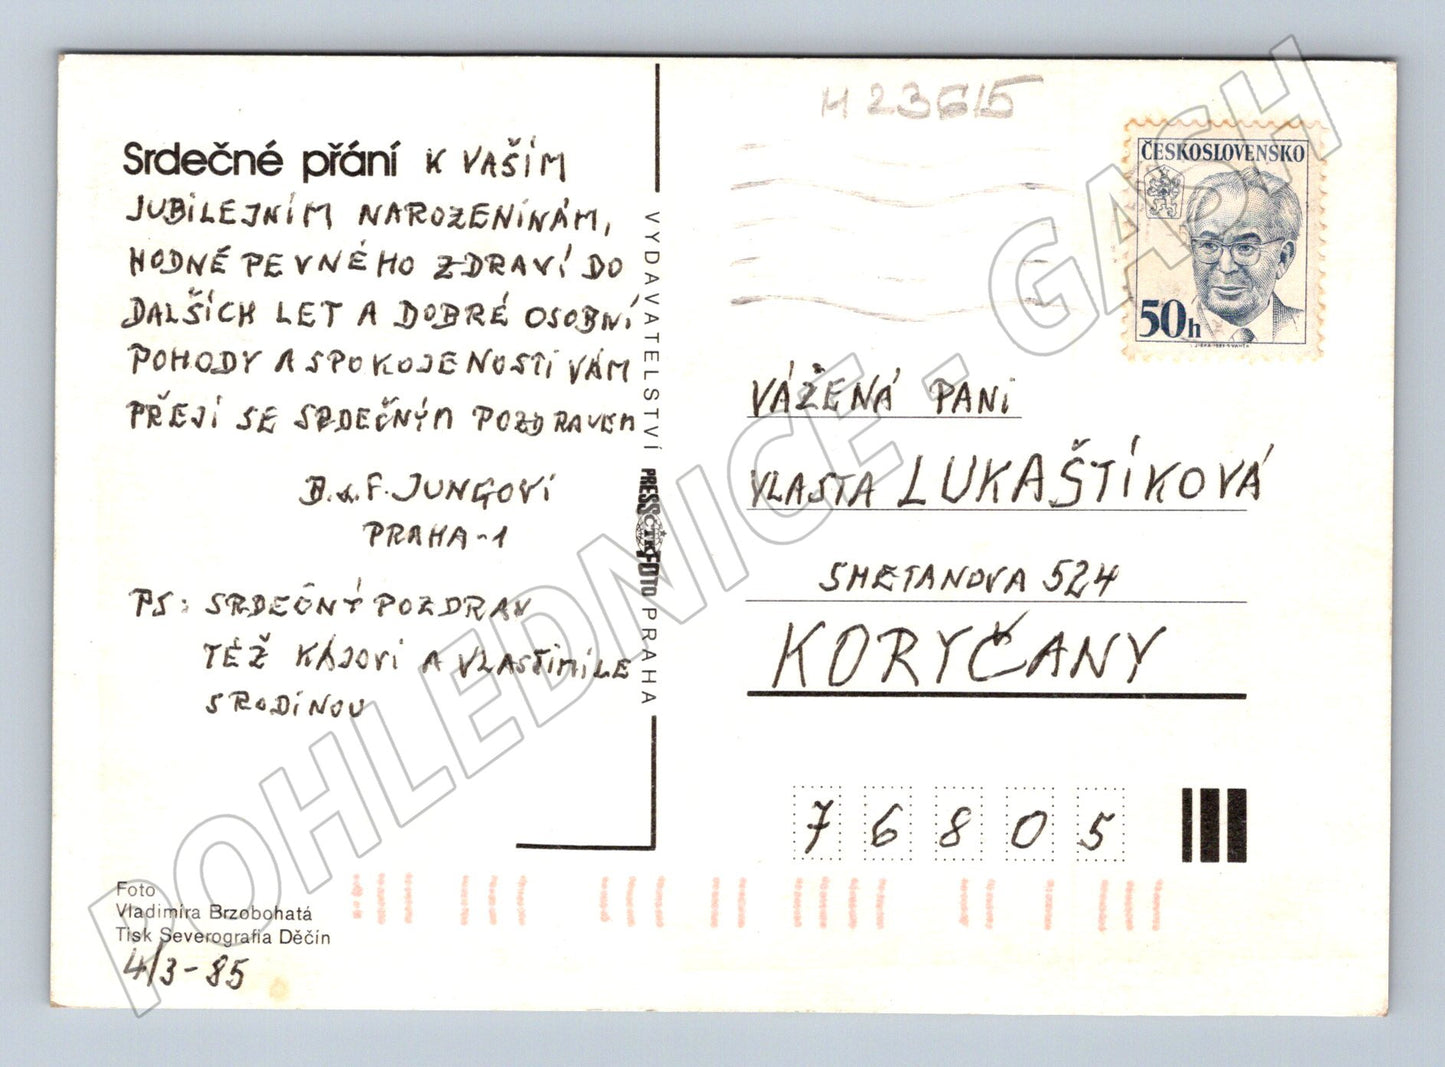 Srdečné přání K VAŠIM
JUBILEJNÍM NAROZENINÁM,
HODNĚ PEVNÉHO ZDRAVÍ DO
DALŠÍCH LET A DOBRÉ OSOBNÍ
POHODY A SPOKOJENOSTI VÁM
PŘEJÍ SE SRDEČNÝM POZDRAVEM
B. a. F. JUNGOVI
PRAHA-1
PS: SRDEČNÝ POZDRAV
TÉŽ KÁJOVI A VLASTIMILE
S RODINOU
Foto
Vladimíra Brzobohatá
Tisk Severografia Děčín
4/3-85
VYDAVATELSTVÍ PRESSFOTO PRAHA
ČTK
M 23615
ČESKOSLOVENSKO
50h
VÁŽENÁ PANI
VLASTA LUKAŠTÍKOVÁ
SMETANOVA 524
KORYČANY
76805
POHLEDNICE - GASH